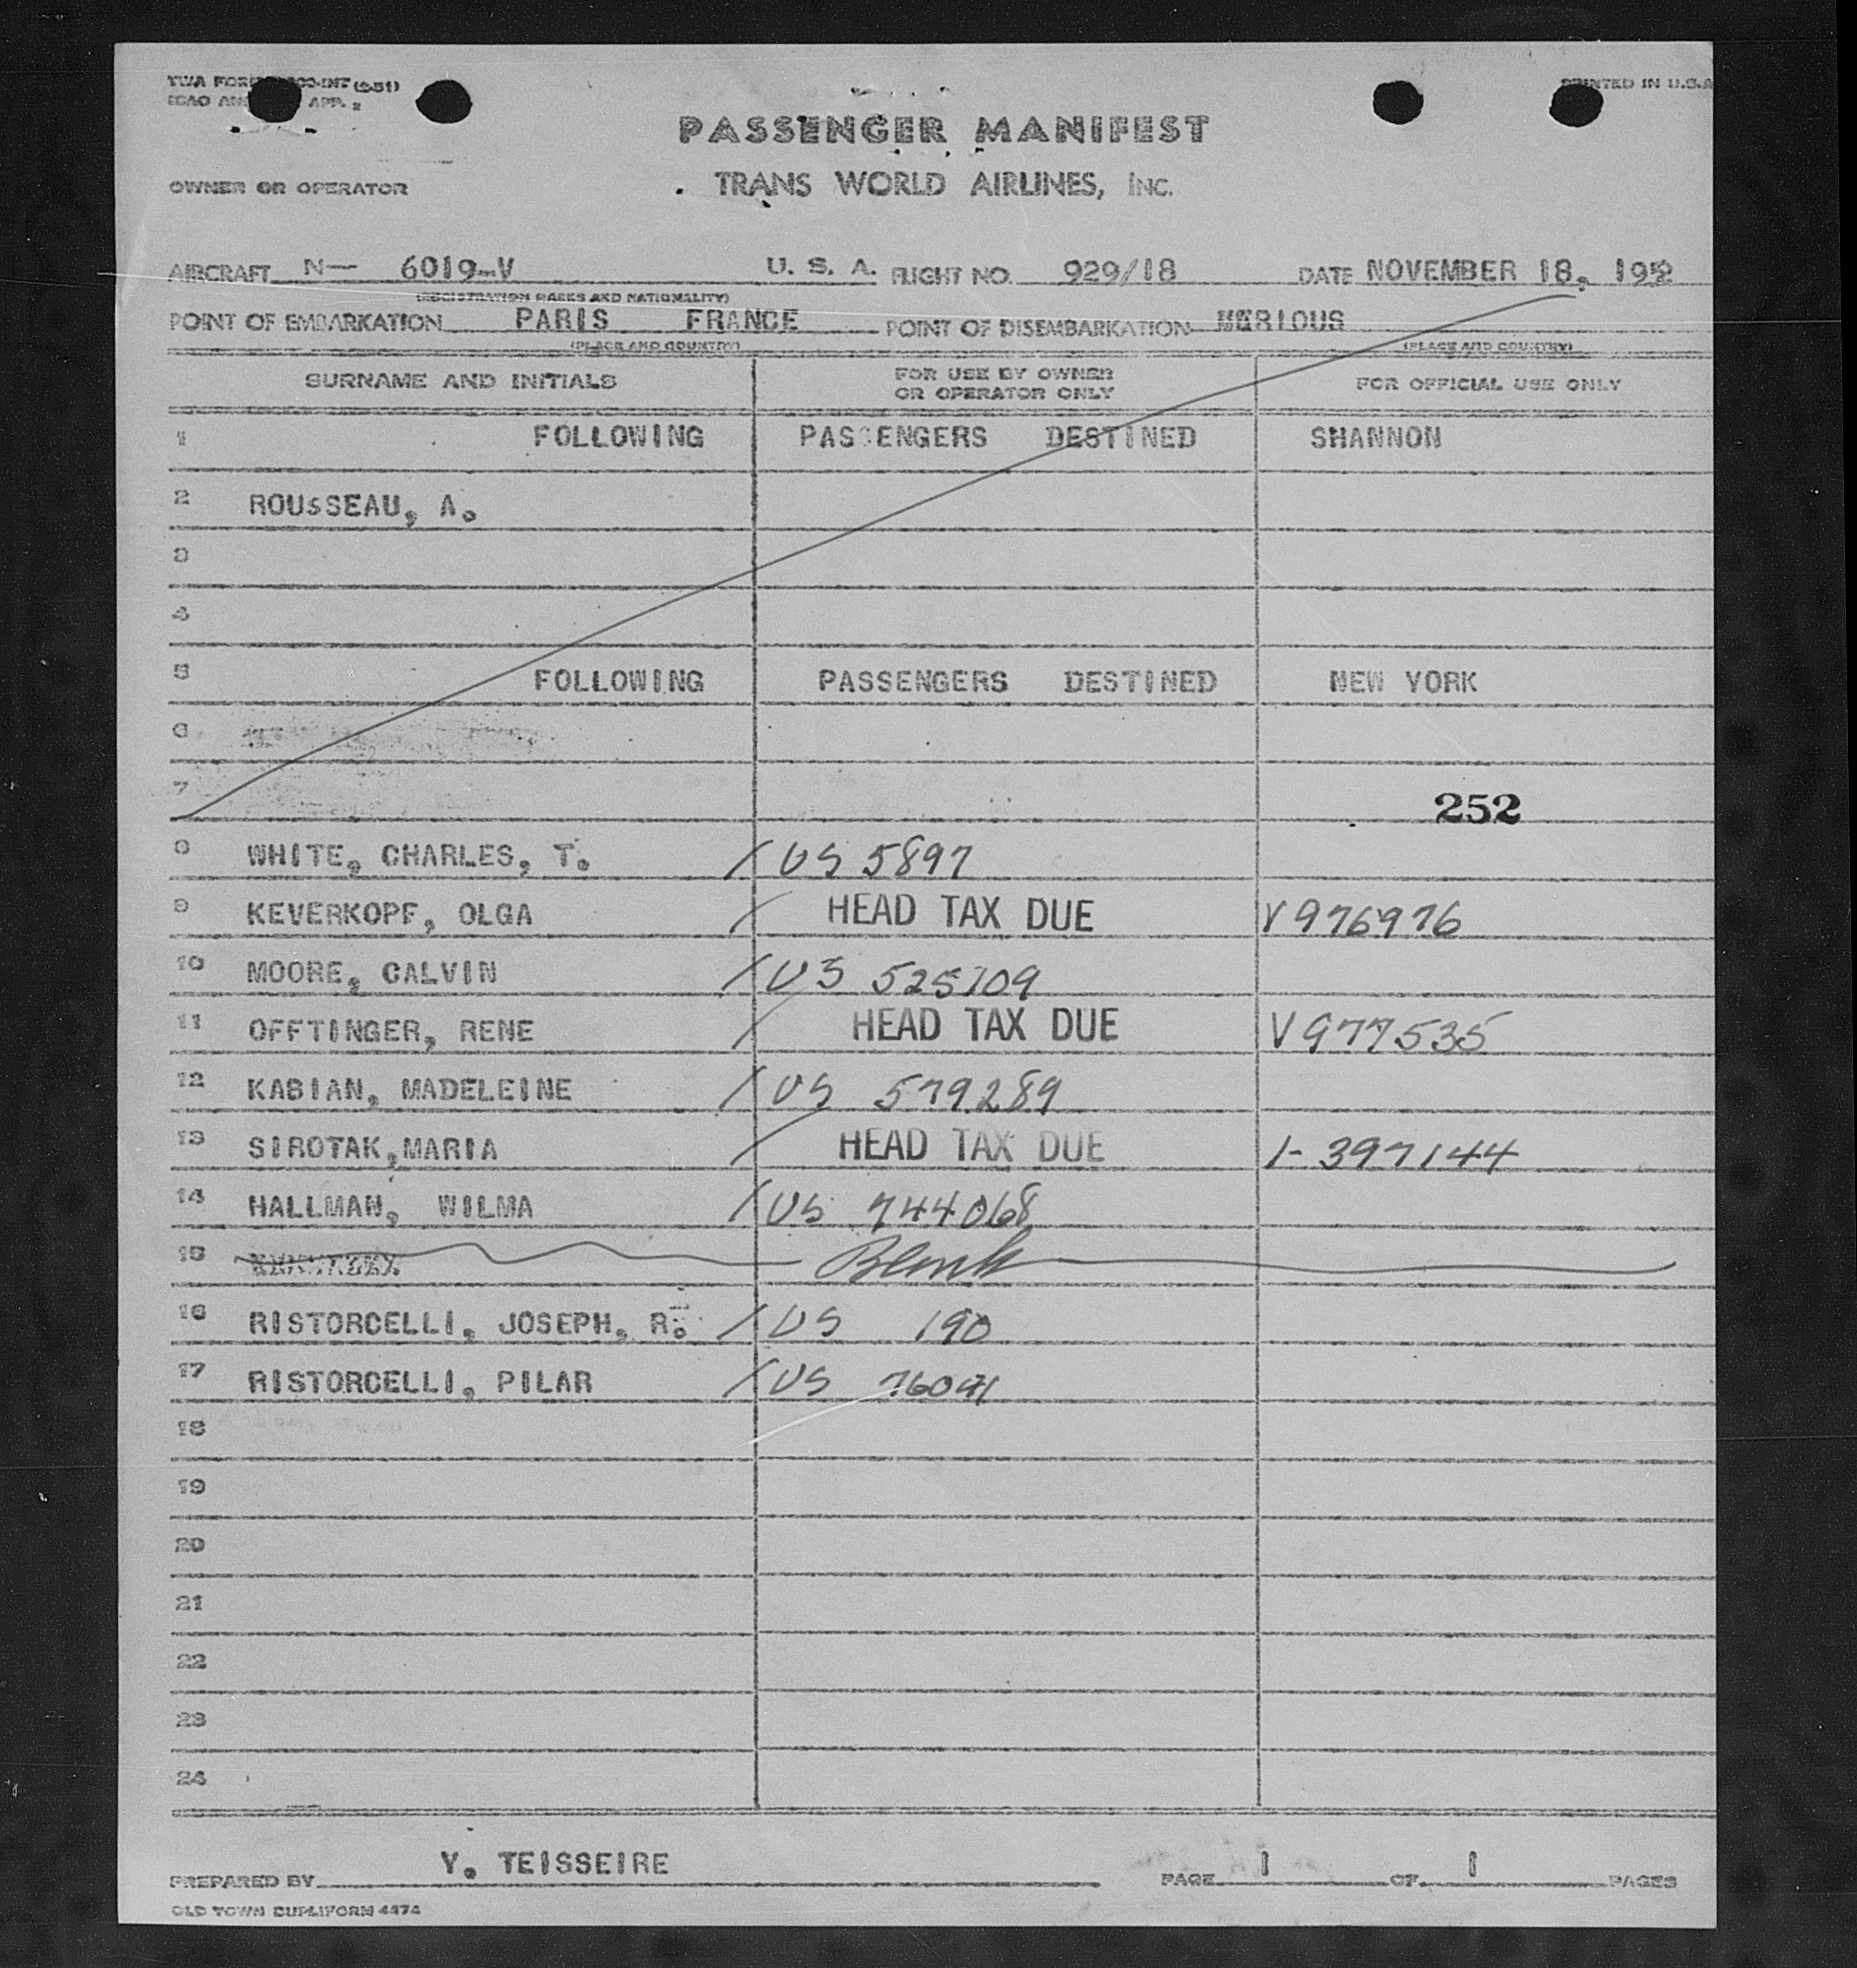 (2-51)
ICAO APP. 2
PRINTED IN U.S.A
PASSENGER MANIFEST
OWNER OR OPERATOR
TRANS WORLD AIRLINES, INC.
AIRCRAFT N— 6019-V U. S. A. FLIGHT NO. 929/18 DATE NOVEMBER 18, 1952
(REGISTRATION MARKS AND NATIONALITY)
POINT OF EMBARKATION PARIS FRANCE POINT OF DISEMBARKATION
(PLACE AND COUNTRY) (PLACE AND COUNTRY)
SURNAME AND INITIALS FOR USE BY OWNER OR OPERATOR ONLY FOR OFFICIAL USE ONLY
1 FOLLOWING PASSENGERS DESTINED SHANNON
2 ROUSSEAU, A.
3
4
5 FOLLOWING PASSENGERS DESTINED NEW YORK
6
7 252
8 WHITE, CHARLES, T. / US 5897
9 KEVERKOPF, OLGA / HEAD TAX DUE V 976976
10 MOORE, CALVIN / US 525109
11 OFFTINGER, RENE / HEAD TAX DUE V 977535
12 KABIAN, MADELEINE / US 579289
13 SIROTAK,MARIA / HEAD TAX DUE 1- 397144
14 HALLMAN, WILMA / US 744068
15 Blank
16 RISTORCELLI, JOSEPH, R. / US 190
17 RISTORCELLI, PILAR / US
18
19
20
21
22
23
24
PREPARED BY Y. TEISSEIRE PAGE 1 OF 1 PAGES
OLD TOWN DUPLIFORM 4474